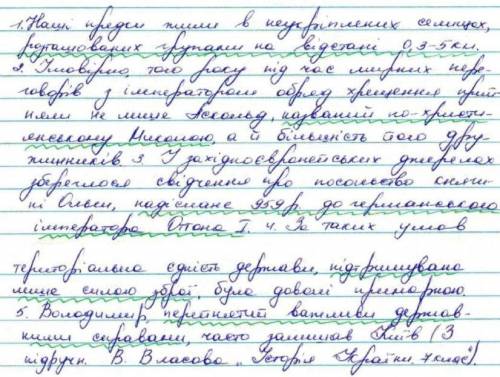 1. Наші предки жили в неукріплених селищах,
розташованих групами на відстані 0,3-5 км.
2. Імовірно, того року під час мирних пере-
говорів з імператором обряд хрещення прий-
няли не лише Аскольд, названий по-христи-
янському Миколою, а й більшість його дру-
жинників. 3. У західноєвропейських джерелах
збереглося свідчення про посольство княги-
ні Ольги, надіслане 959 р. до германського
імператора Оттона I. 4. За таких умов
територіальна єдність держави, підтримувана
лише силою зброї, була доволі примарною.
5. Володимир, переймаючись важливими держав-
ними справами, часто залишав Київ (З
підручн. В. Власова „Історія України. 7 клас").